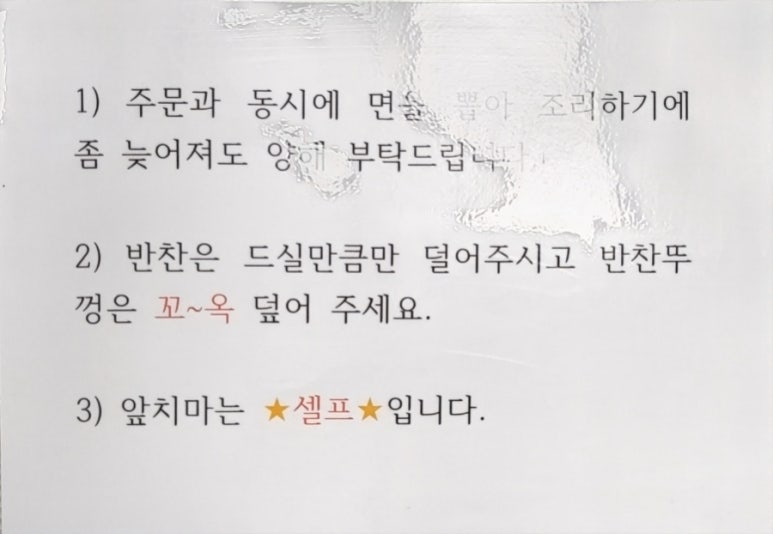 1) 주문과 동시에 면을 뽑아 조리하기에
좀 늦어져도 양해 부탁드립니다.
2) 반찬은 드실만큼만 덜어주시고 반찬뚜
껑은 꼬~옥 덮어 주세요.
3) 앞치마는 ★셀프★입니다.